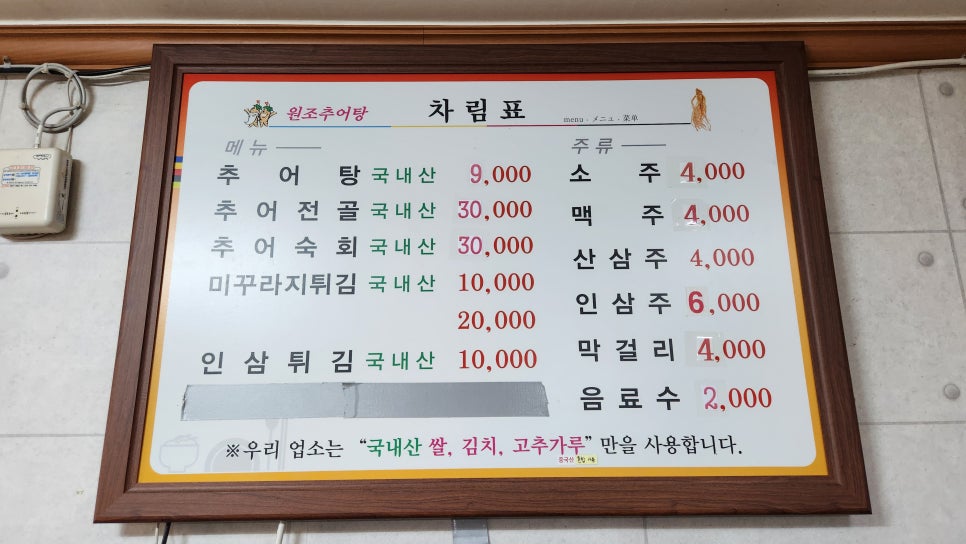 원조추어탕
차림표
menu . メニュ . 菜単
메뉴
추어탕 국내산 9,000
추어전골 국내산 30,000
추어숙회 국내산 30,000
미꾸라지튀김 국내산 10,000
20,000
인삼튀김 국내산 10,000
주류
소주 4,000
맥주 4,000
산삼주 4,000
인삼주 6,000
막걸리 4,000
음료수 2,000
※우리 업소는 “국내산 쌀, 김치, 고추가루” 만을 사용합니다.
중국산